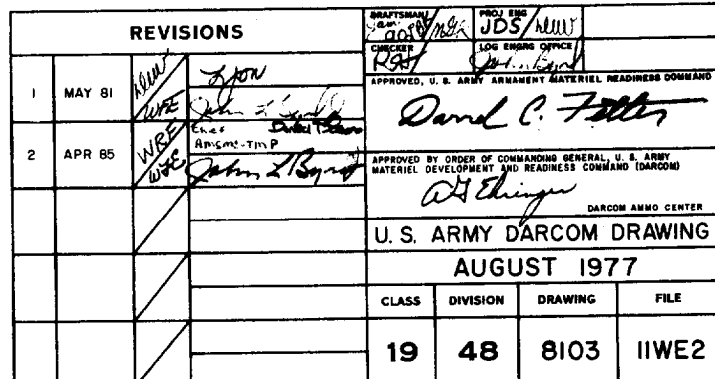 REVISIONS
1 MAY 81 Lyon
WFE
2 APR 85 WRE
WFE
AMSMC-TMP
John L Byrd
DRAFTSMAN
PROJ ENG
JDS
CHECKER
LOG ENGRG OFFICE
John Byrd
APPROVED, U. S. ARMY ARMAMENT MATERIEL READINESS COMMAND
David C.
APPROVED BY ORDER OF COMMANDING GENERAL, U. S. ARMY
MATERIEL DEVELOPMENT AND READINESS COMMAND (DARCOM)
DARCOM AMMO CENTER
U. S. ARMY DARCOM DRAWING
AUGUST 1977
CLASS DIVISION DRAWING FILE
19 48 8103 11WE2